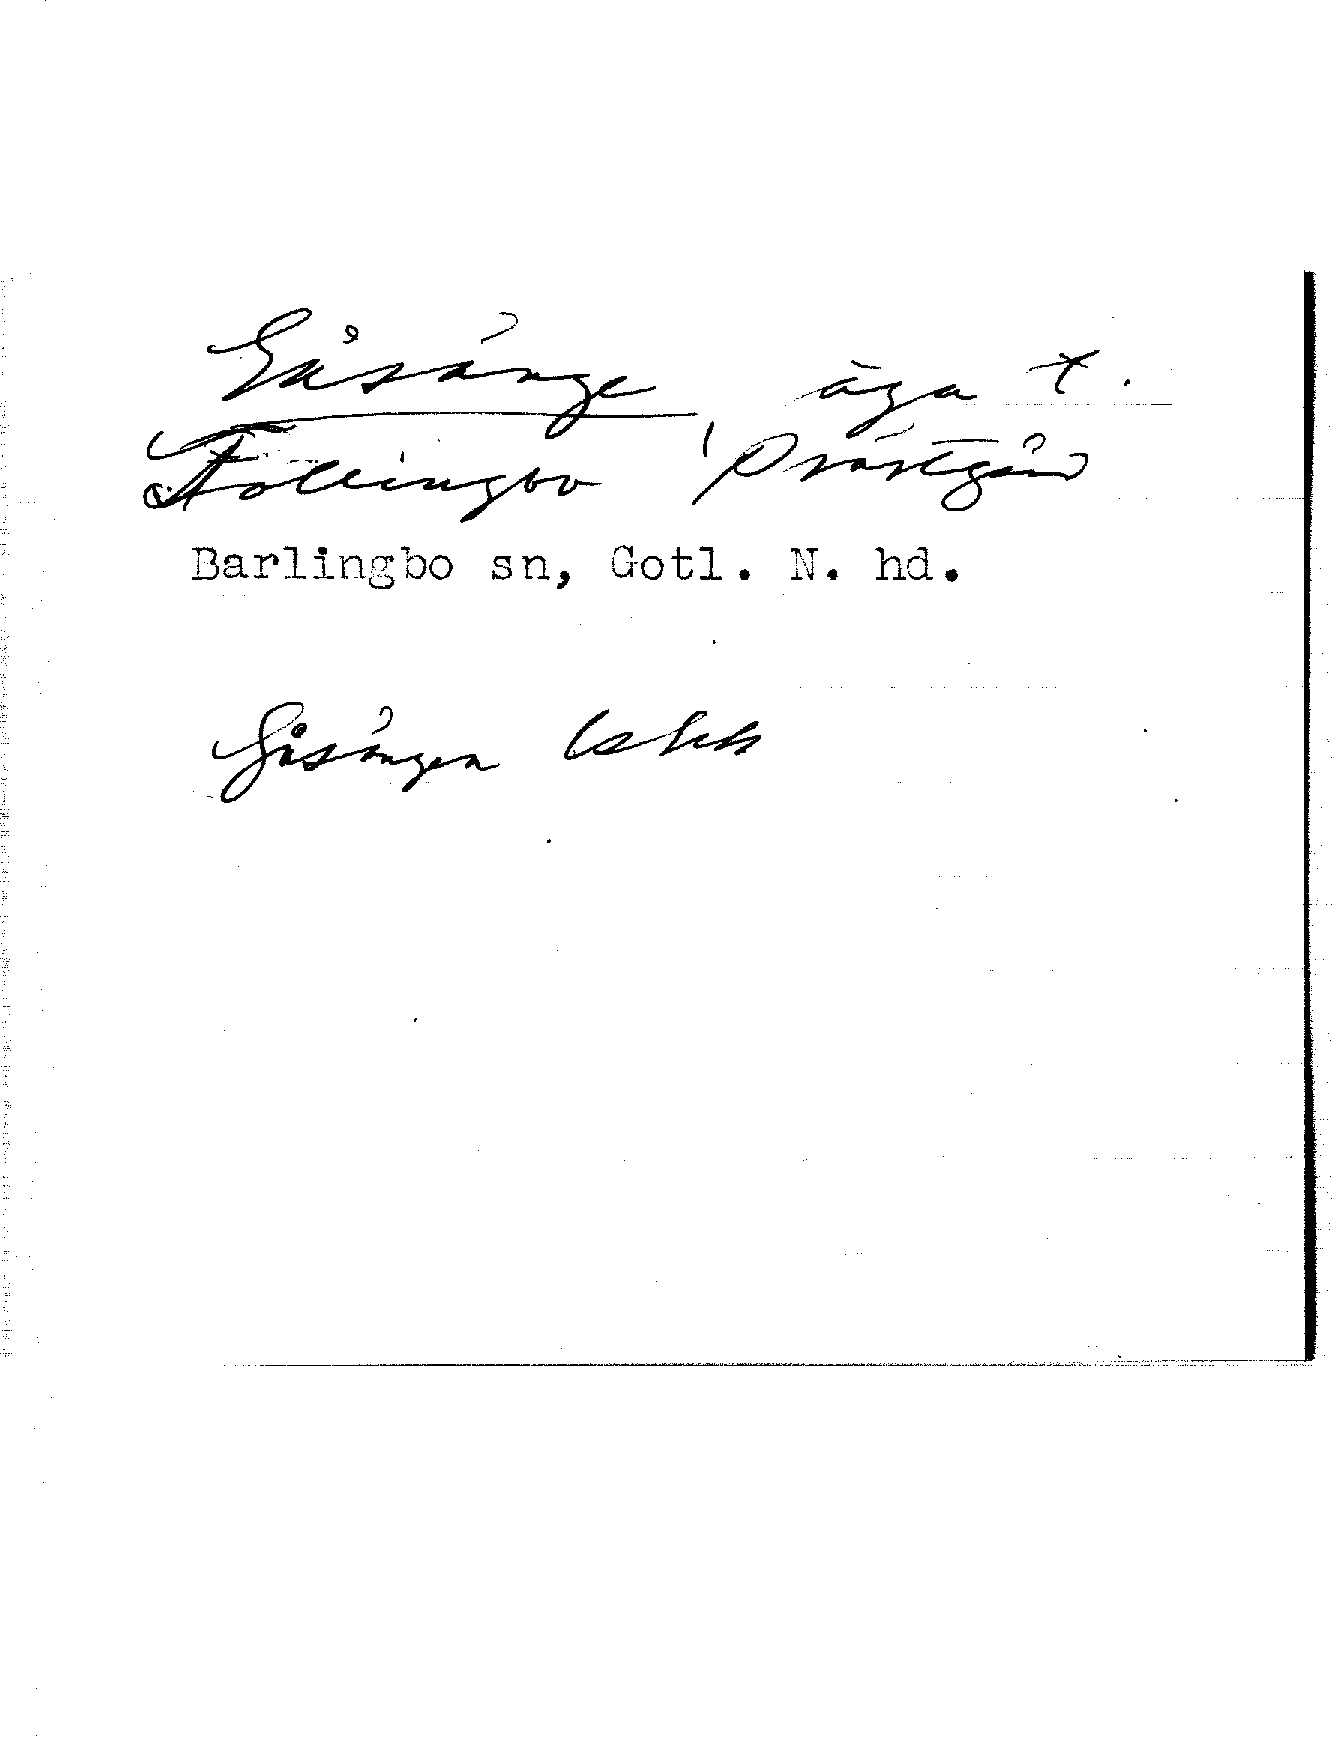 Gåsänge, äga t.
Follingbo Prästgård
Barlingbo sn, Gotl. N. hd.
Gåsängen